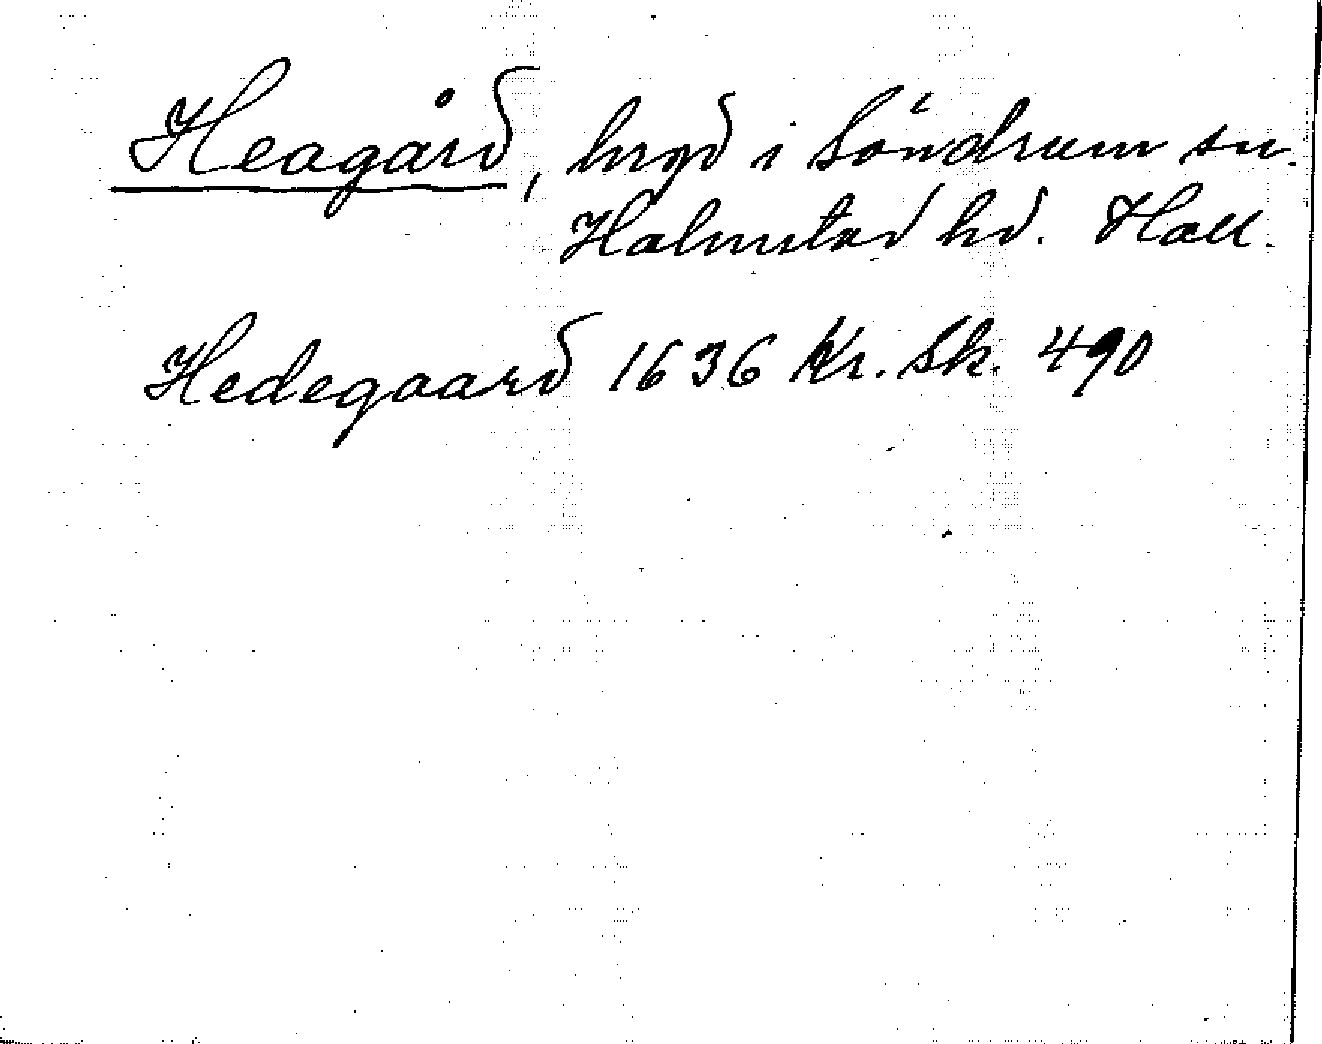 Heagård, hrgd i Söndrum sn.
Halmstad hd. Hall.
Hedegaard 1636 Kr. Sk. 490